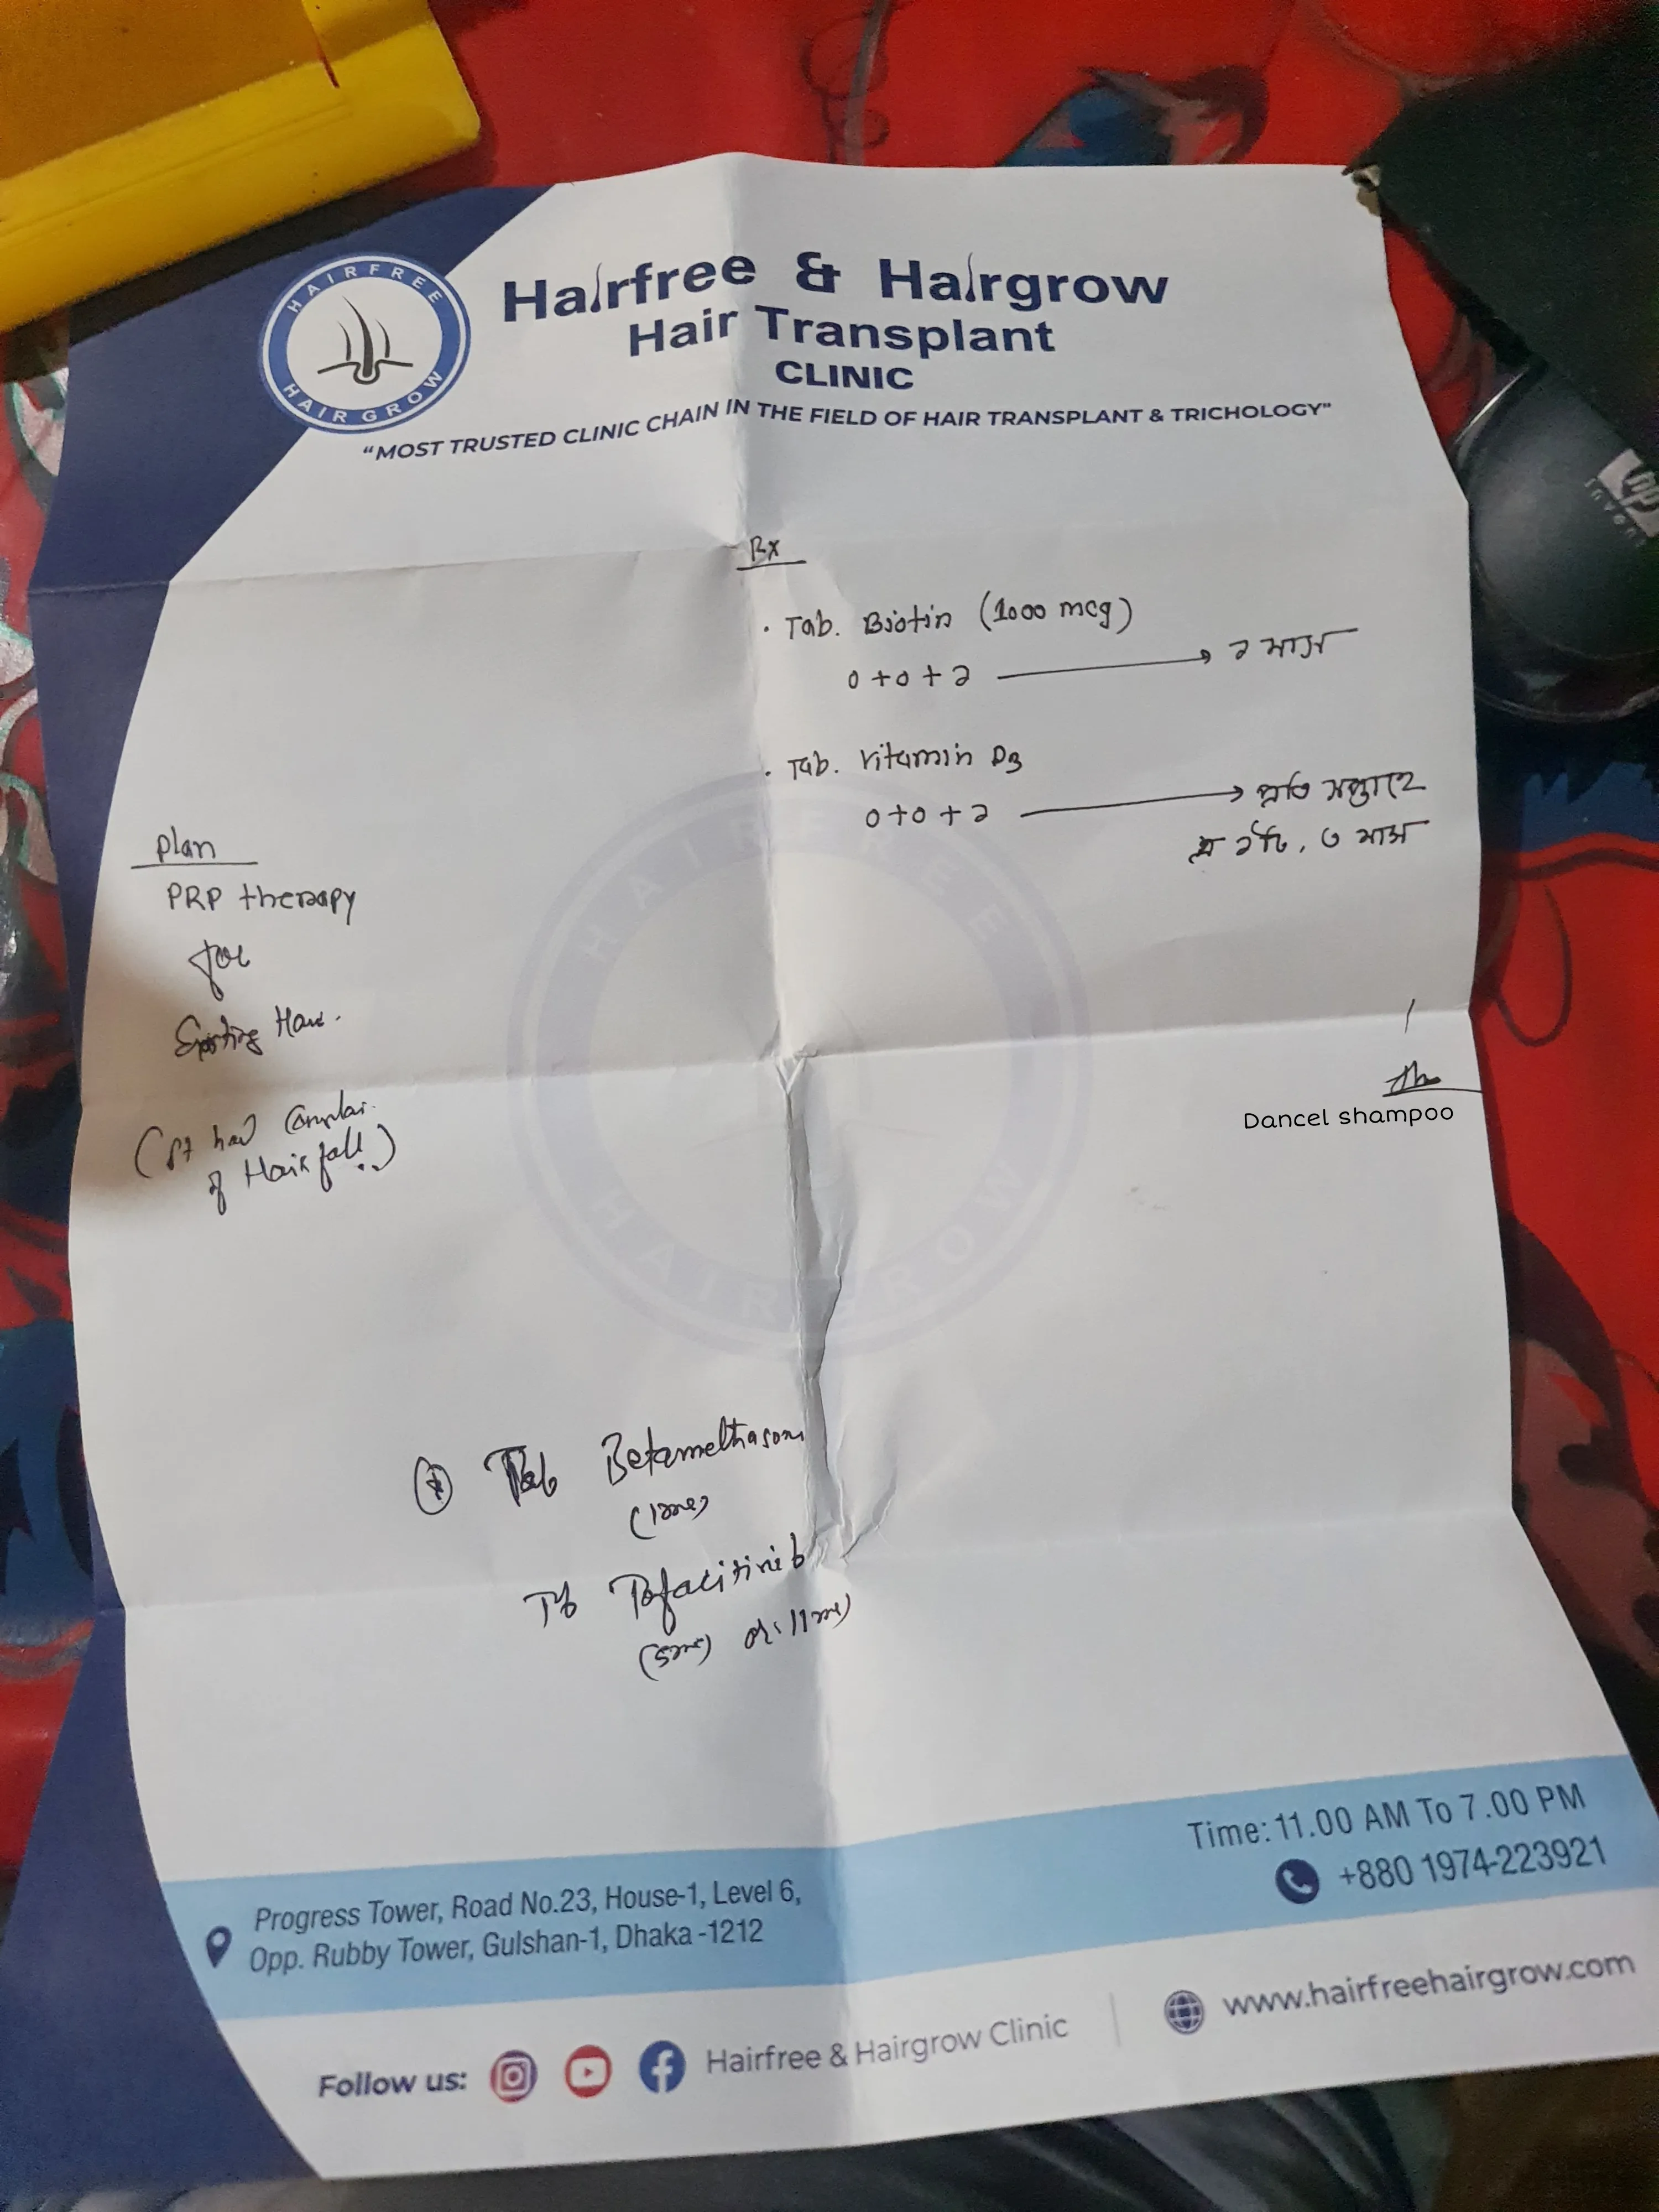 HAIRFREE
HAIR GROW
Hairfree & Hairgrow
Hair Transplant
CLINIC
“MOST TRUSTED CLINIC CHAIN IN THE FIELD OF HAIR TRANSPLANT & TRICHOLOGY”
Rx
· Tab. Biotin (1000 mcg)
০+০+১ → ২ মাস
· Tab. Vitamin D3
০+০+১ → প্রতি সপ্তাহে
১টি, ৩ মাস
Plan
PRP therapy
for
Existing Hair.
(Pt had
of Hair fall..)
Dancel shampoo
HAIRFREE
HAIR GROW
Tab Betamethason
Tb Tofacitinib
(5mg) or 11mg)
Time: 11.00 AM To 7.00 PM
+880 1974-223921
Progress Tower, Road No.23, House-1, Level 6,
Opp. Rubby Tower, Gulshan-1, Dhaka -1212
Follow us: Hairfree & Hairgrow Clinic
www.hairfreehairgrow.com
hp
invent